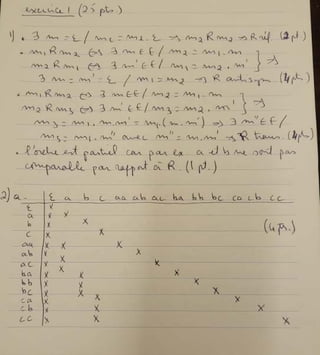 exercice 1 (25 pts)
1) • ∃ m = ε / m₂ = m₂. ε ⇒ m₂ R m₂ ⇒ R réf. (2pt.)
• m₁ R m₂ ⇔ ∃ m ∈ E / m₂ = m₁. m
m₂ R m₁ ⇔ ∃ m' ∈ E / m₁ = m₂. m' } ⇒
∃ m = m' = ε / m₁ = m₂ ⇒ R antisym. (4pt.)
• m₁ R m₂ ⇔ ∃ m ∈ E / m₂ = m₁. m
m₂ R m₃ ⇔ ∃ m' ∈ E / m₃ = m₂. m' } ⇒
m₃ = m₁. m. m' = m₁. (m. m') ⇒ ∃ m'' ∈ E /
m₃ = m₁. m'' avec m'' = m. m' ⇒ R trans. (4pt.)
• l'ordre est partiel car par ex. a et b ne sont pas
comparable par rapport à R. (1 pt.)
2) a. ε a b c aa ab ac ba bb bc ca cb cc
ε x
a x x
b x x
c x x (4pt.)
aa x x x
ab x x x
ac x x x
ba x x x
bb x x x
bc x x x
ca x x x
cb x x x
cc x x x